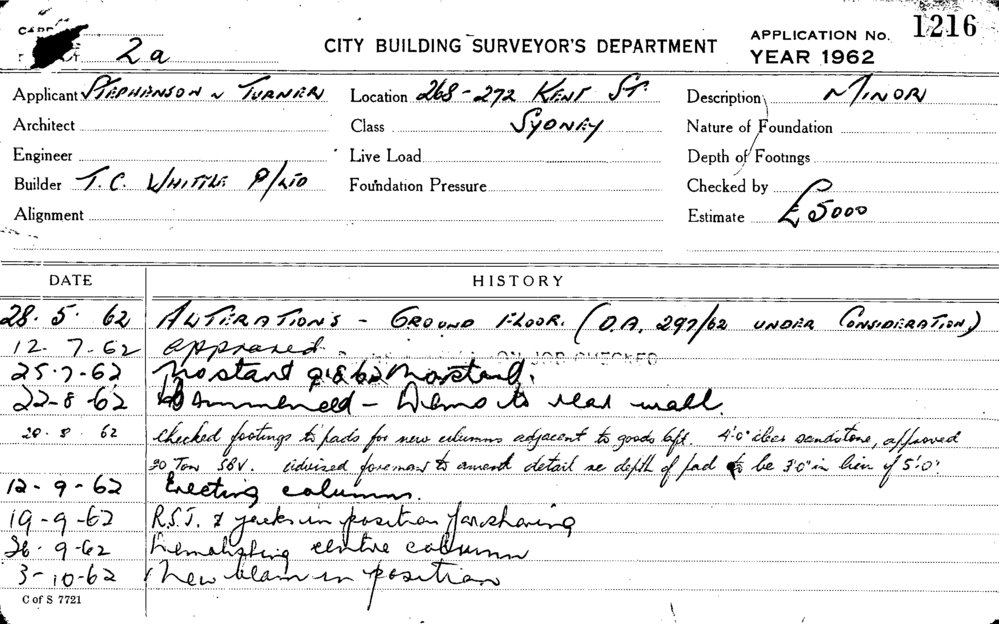 2a
CITY BUILDING SURVEYOR'S DEPARTMENT
APPLICATION No. 1216
YEAR 1962
Applicant STEPHENSON & TURNER
Location 268-272 KENT ST.
Description MINOR
Architect
Class SYDNEY
Nature of Foundation
Engineer
Live Load
Depth of Footings
Builder T.C. WHITTLE P/LTD
Foundation Pressure
Checked by
Alignment
Estimate £5000
DATE HISTORY
28. 5. 62 ALTERATIONS - GROUND FLOOR. (D.A. 297/62 UNDER CONSIDERATION)
12. 7. 62 approved
ON JOB CHECKED
25-7-62 No start
22-8-62 Commenced - Demo to rear wall.
29. 8. 62 checked footings to pads for new columns adjacent to goods lift. 4'-0" sandstone, approved
20 Ton SBV. advised foreman to amend detail re depth of pad to be 3'0" in lieu of 5'0".
12-9-62 Erecting columns.
19-9-62 R.S.J. & jacks in position for shoring
26-9-62 Demolishing centre column
3-10-62 New beam in position
C of S 7721